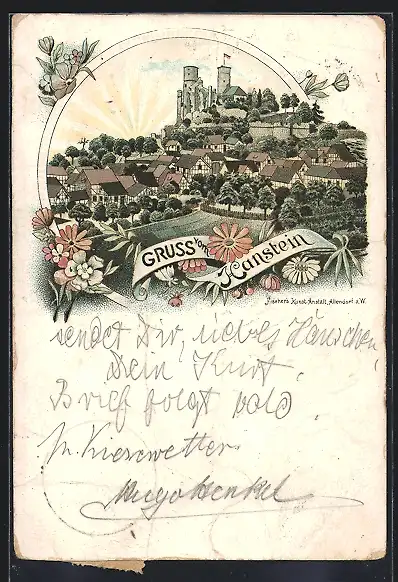 GRUSS vom
Hanstein
Fischer's Kunst-Anstalt, Allendorf a/W.
sendet Dir, liebes Hänschen,
Dein Kurt.
Brief folgt bald
Kiesewetter
Hugo Henkel